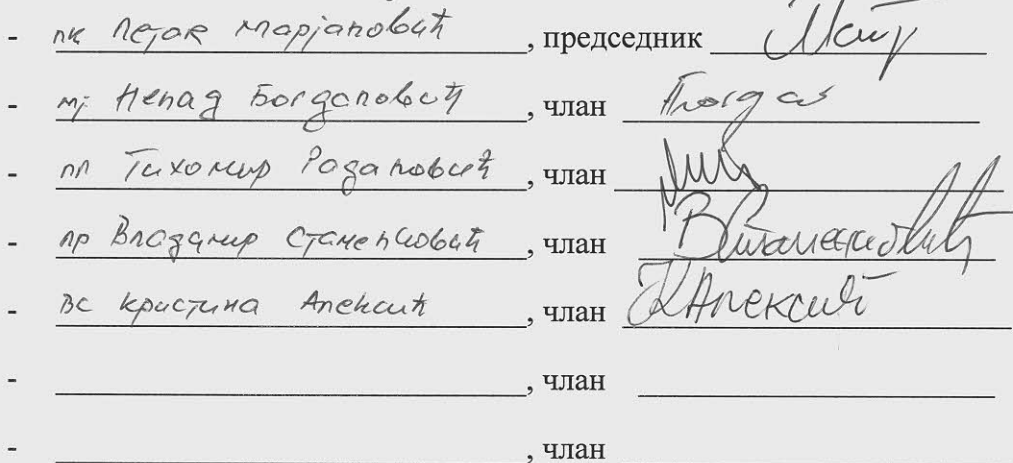 - пк Петар Марјановић, председник
- мј Ненад Богдановић, члан
- пп Тихомир Радановић, члан
- пр Владимир Стаменковић, члан В Стаменковић
- ВС Кристина Алексић, члан К Алексић
- , члан
- , члан